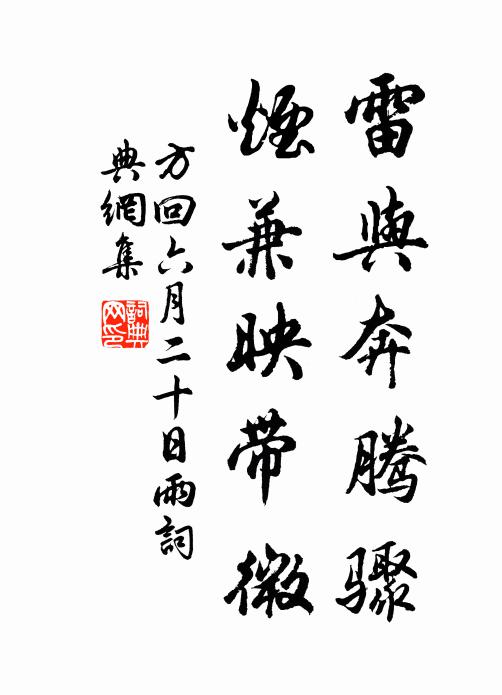 雷與奔騰驟
煙兼映帶微
方回六月二十日雨詞
典網集
詞典
网印